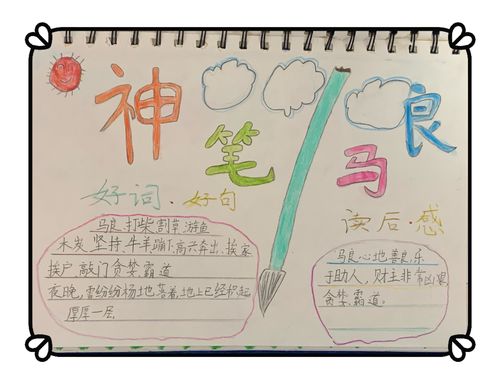 神笔马良
好词·好句
马良.打柴.割草.游鱼
木炭.坚持.牛羊蹦下.高兴奔出.挨家
挨户 敲门 贪婪.霸道
夜晚,雪纷纷扬扬地落着,地上已经积起
厚厚一层.
读后·感
马良心地善良,乐
于助人,财主非常凶狠
贪婪.霸道.